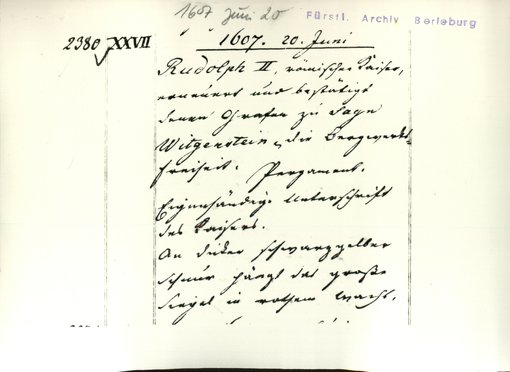 1607 Juni 20
Fürstl. Archiv Berleburg
2380 XXVII
1607. 20. Juni
Rudolph II, römischer Kaiser,
erneuert und bestätigt
denen Grafen zu Sayn
Witgenstein, die Bergwerks-
freiheit. Pergament.
Eigenhändige Unterschrift
des Kaisers.
An dicker schwarzgelber
Schnur hängt das große
Siegel in rothem Wachs.